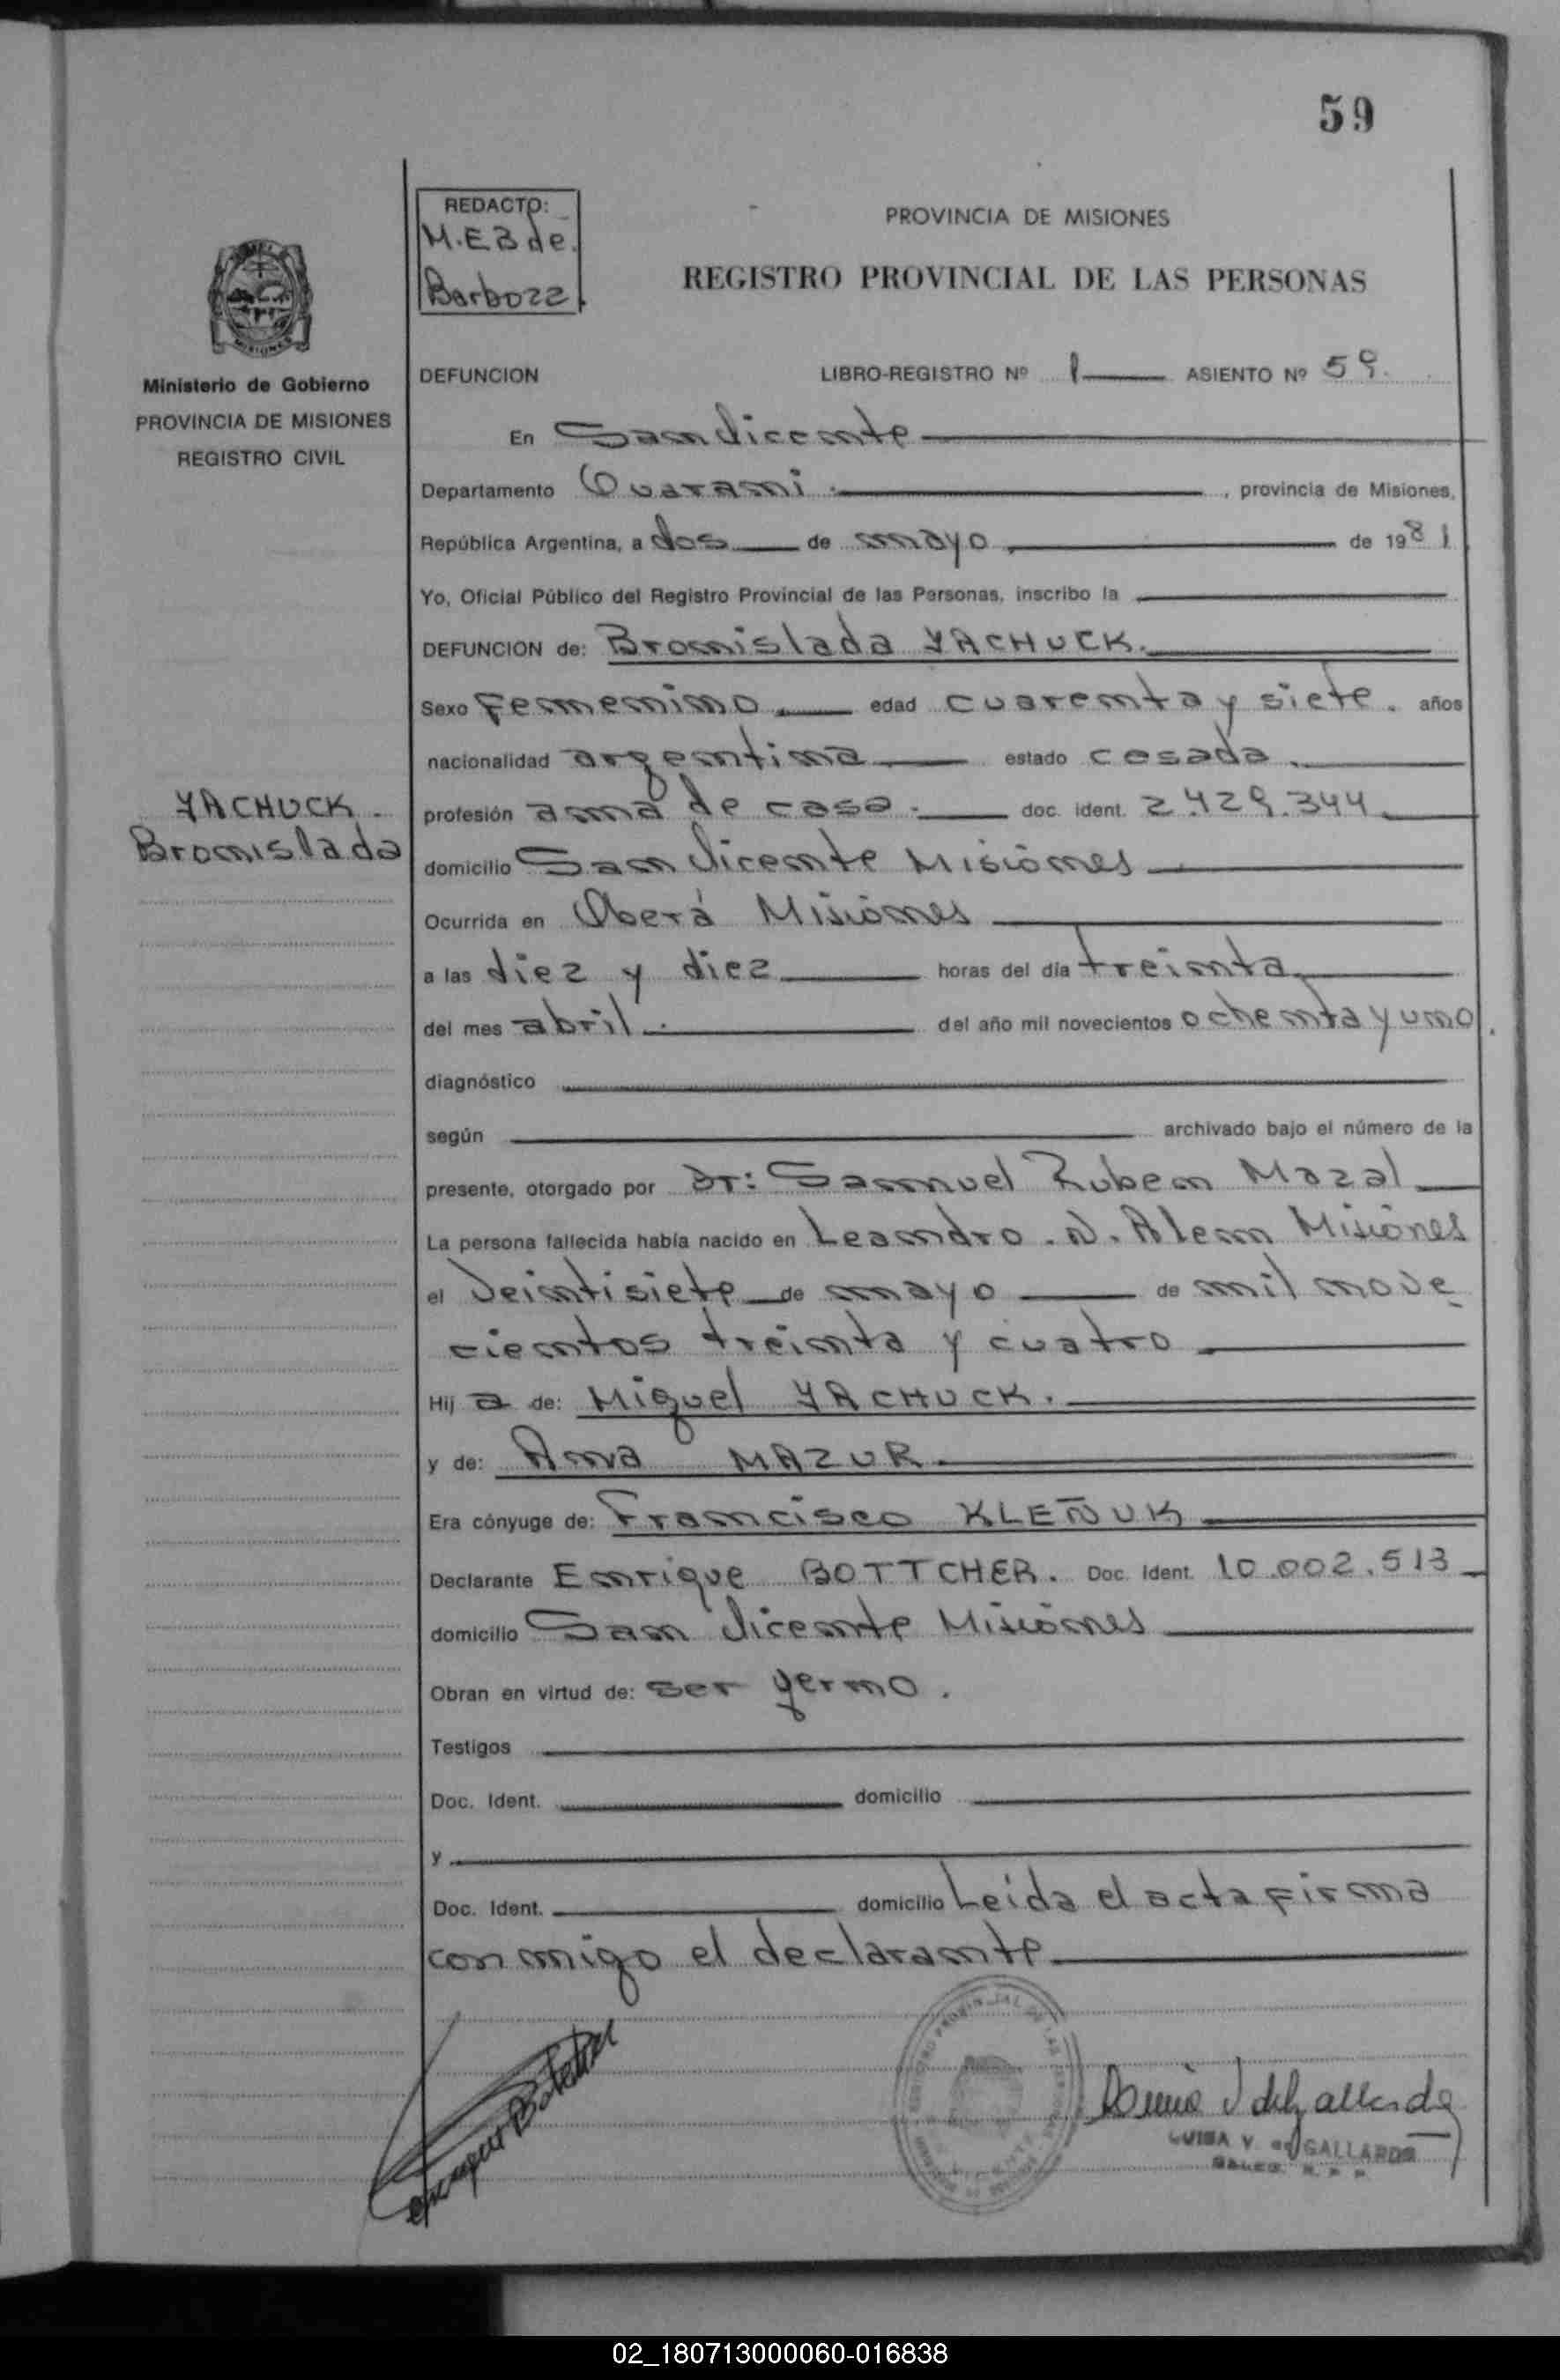 59
REDACTO:
M.E.B de.
Barboza
PROVINCIA DE MISIONES
REGISTRO PROVINCIAL DE LAS PERSONAS
Ministerio de Gobierno
PROVINCIA DE MISIONES
REGISTRO CIVIL
DEFUNCION LIBRO-REGISTRO Nº 1 ASIENTO Nº 59.
En San Vicente
Departamento Guarani , provincia de Misiones,
República Argentina, a dos de mayo de 1981
Yo, Oficial Público del Registro Provincial de las Personas, inscribo la
DEFUNCION de: Bronislada YACHUCK.
Sexo Femenino edad cuarenta y siete. años
nacionalidad argentina estado casada.
YACHUCK
Bronislada
profesión ama de casa. doc. ident. 2.429.344
domicilio San Vicente Misiones
Ocurrida en Oberá Misiones
a las diez y diez horas del día treinta
del mes abril. del año mil novecientos ochenta y uno.
diagnóstico
según archivado bajo el número de la
presente, otorgado por Dr: Samuel Ruben Mazal
La persona fallecida había nacido en Leandro. N. Alem Misiones
el Veintisiete de mayo de mil nove
cientos treinta y cuatro
Hij a de: Miguel YACHUCK.
y de: Ana MAZUR.
Era cónyuge de: Francisco KLEÑUK
Declarante Enrique BOTTCHER. Doc. Ident. 10.002.513
domicilio San Vicente Misiones
Obran en virtud de: ser yerno.
Testigos
Doc. Ident. domicilio
y
Doc. Ident. domicilio Leida el acta firma
conmigo el declarante
LUISA V. de GALLARDO
02_180713000060-016838